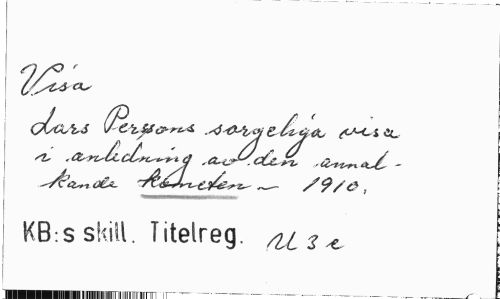 Visa
Lars Perssons sorgeliga visa
i anledning av den annal-
kande kometen – 1910.
KB:s skill. Titelreg. U 3 e